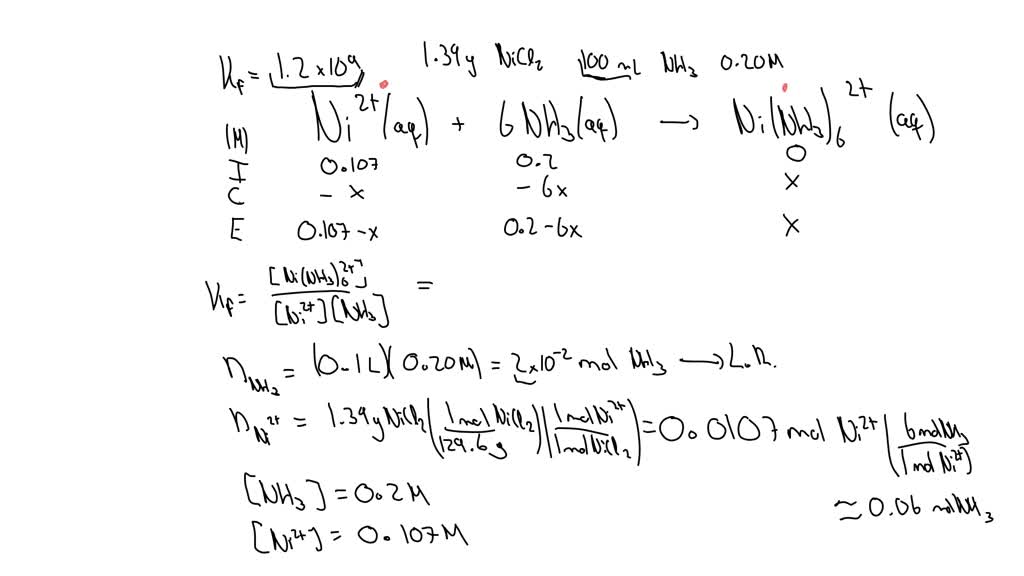 Kf = 1.2 x 10^9 1.39g NiCl2 100 mL NH3 0.20M
Ni^2+ (aq) + 6NH3 (aq) → Ni(NH3)6^2+ (aq)
(M)
I 0.107 0.2 0
C - x - 6x x
E 0.107 - x 0.2 - 6x x
Kf = [Ni(NH3)6^2+] / [Ni^2+][NH3] =
nNH3 = (0.1L)(0.20M) = 2x10^-2 mol NH3 → L.R.
nNi^2+ = 1.39g NiCl2 (1 mol NiCl2 / 129.6g)(1 mol Ni^2+ / 1 mol NiCl2) = 0.0107 mol Ni^2+ (6 mol NH3 / 1 mol Ni^2+)
≈ 0.06 mol NH3
[NH3] = 0.2M
[Ni^2+] = 0.107M